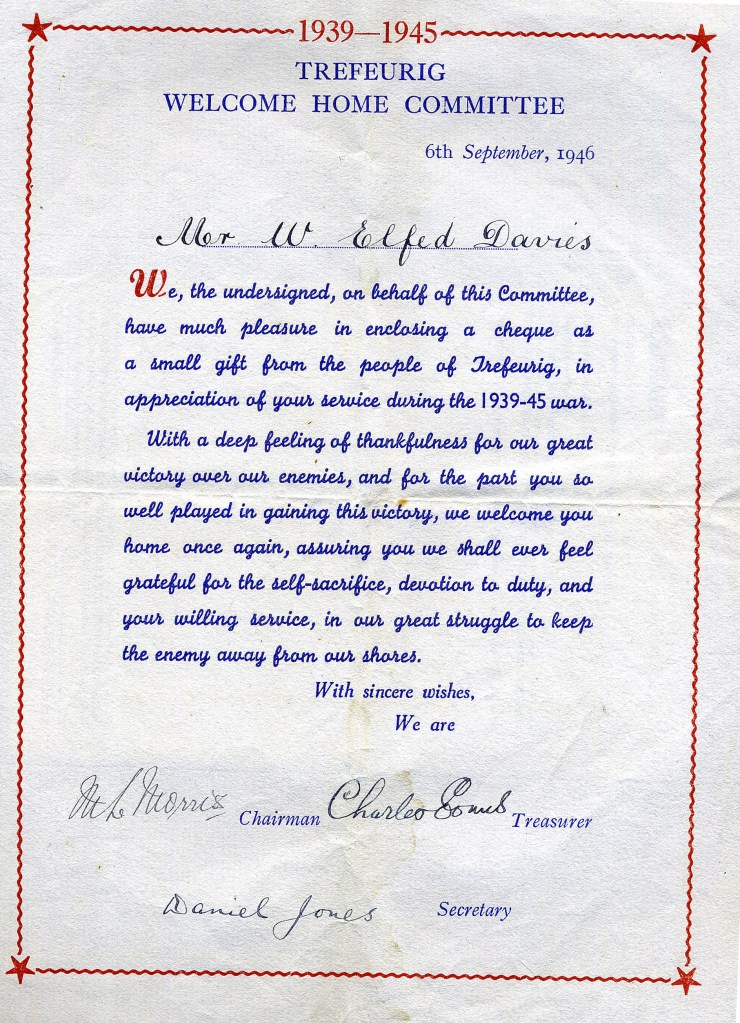 1939—1945
TREFEURIG
WELCOME HOME COMMITTEE
6th September, 1946
Mr W. Elfed Davies
We, the undersigned, on behalf of this Committee,
have much pleasure in enclosing a cheque as
a small gift from the people of Trefeurig, in
appreciation of your service during the 1939-45 war.
With a deep feeling of thankfulness for our great
victory over our enemies, and for the part you so
well played in gaining this victory, we welcome you
home once again, assuring you we shall ever feel
grateful for the self-sacrifice, devotion to duty, and
your willing service, in our great struggle to keep
the enemy away from our shores.
With sincere wishes,
We are
M L Morris Chairman Charles Treasurer
Daniel Jones Secretary